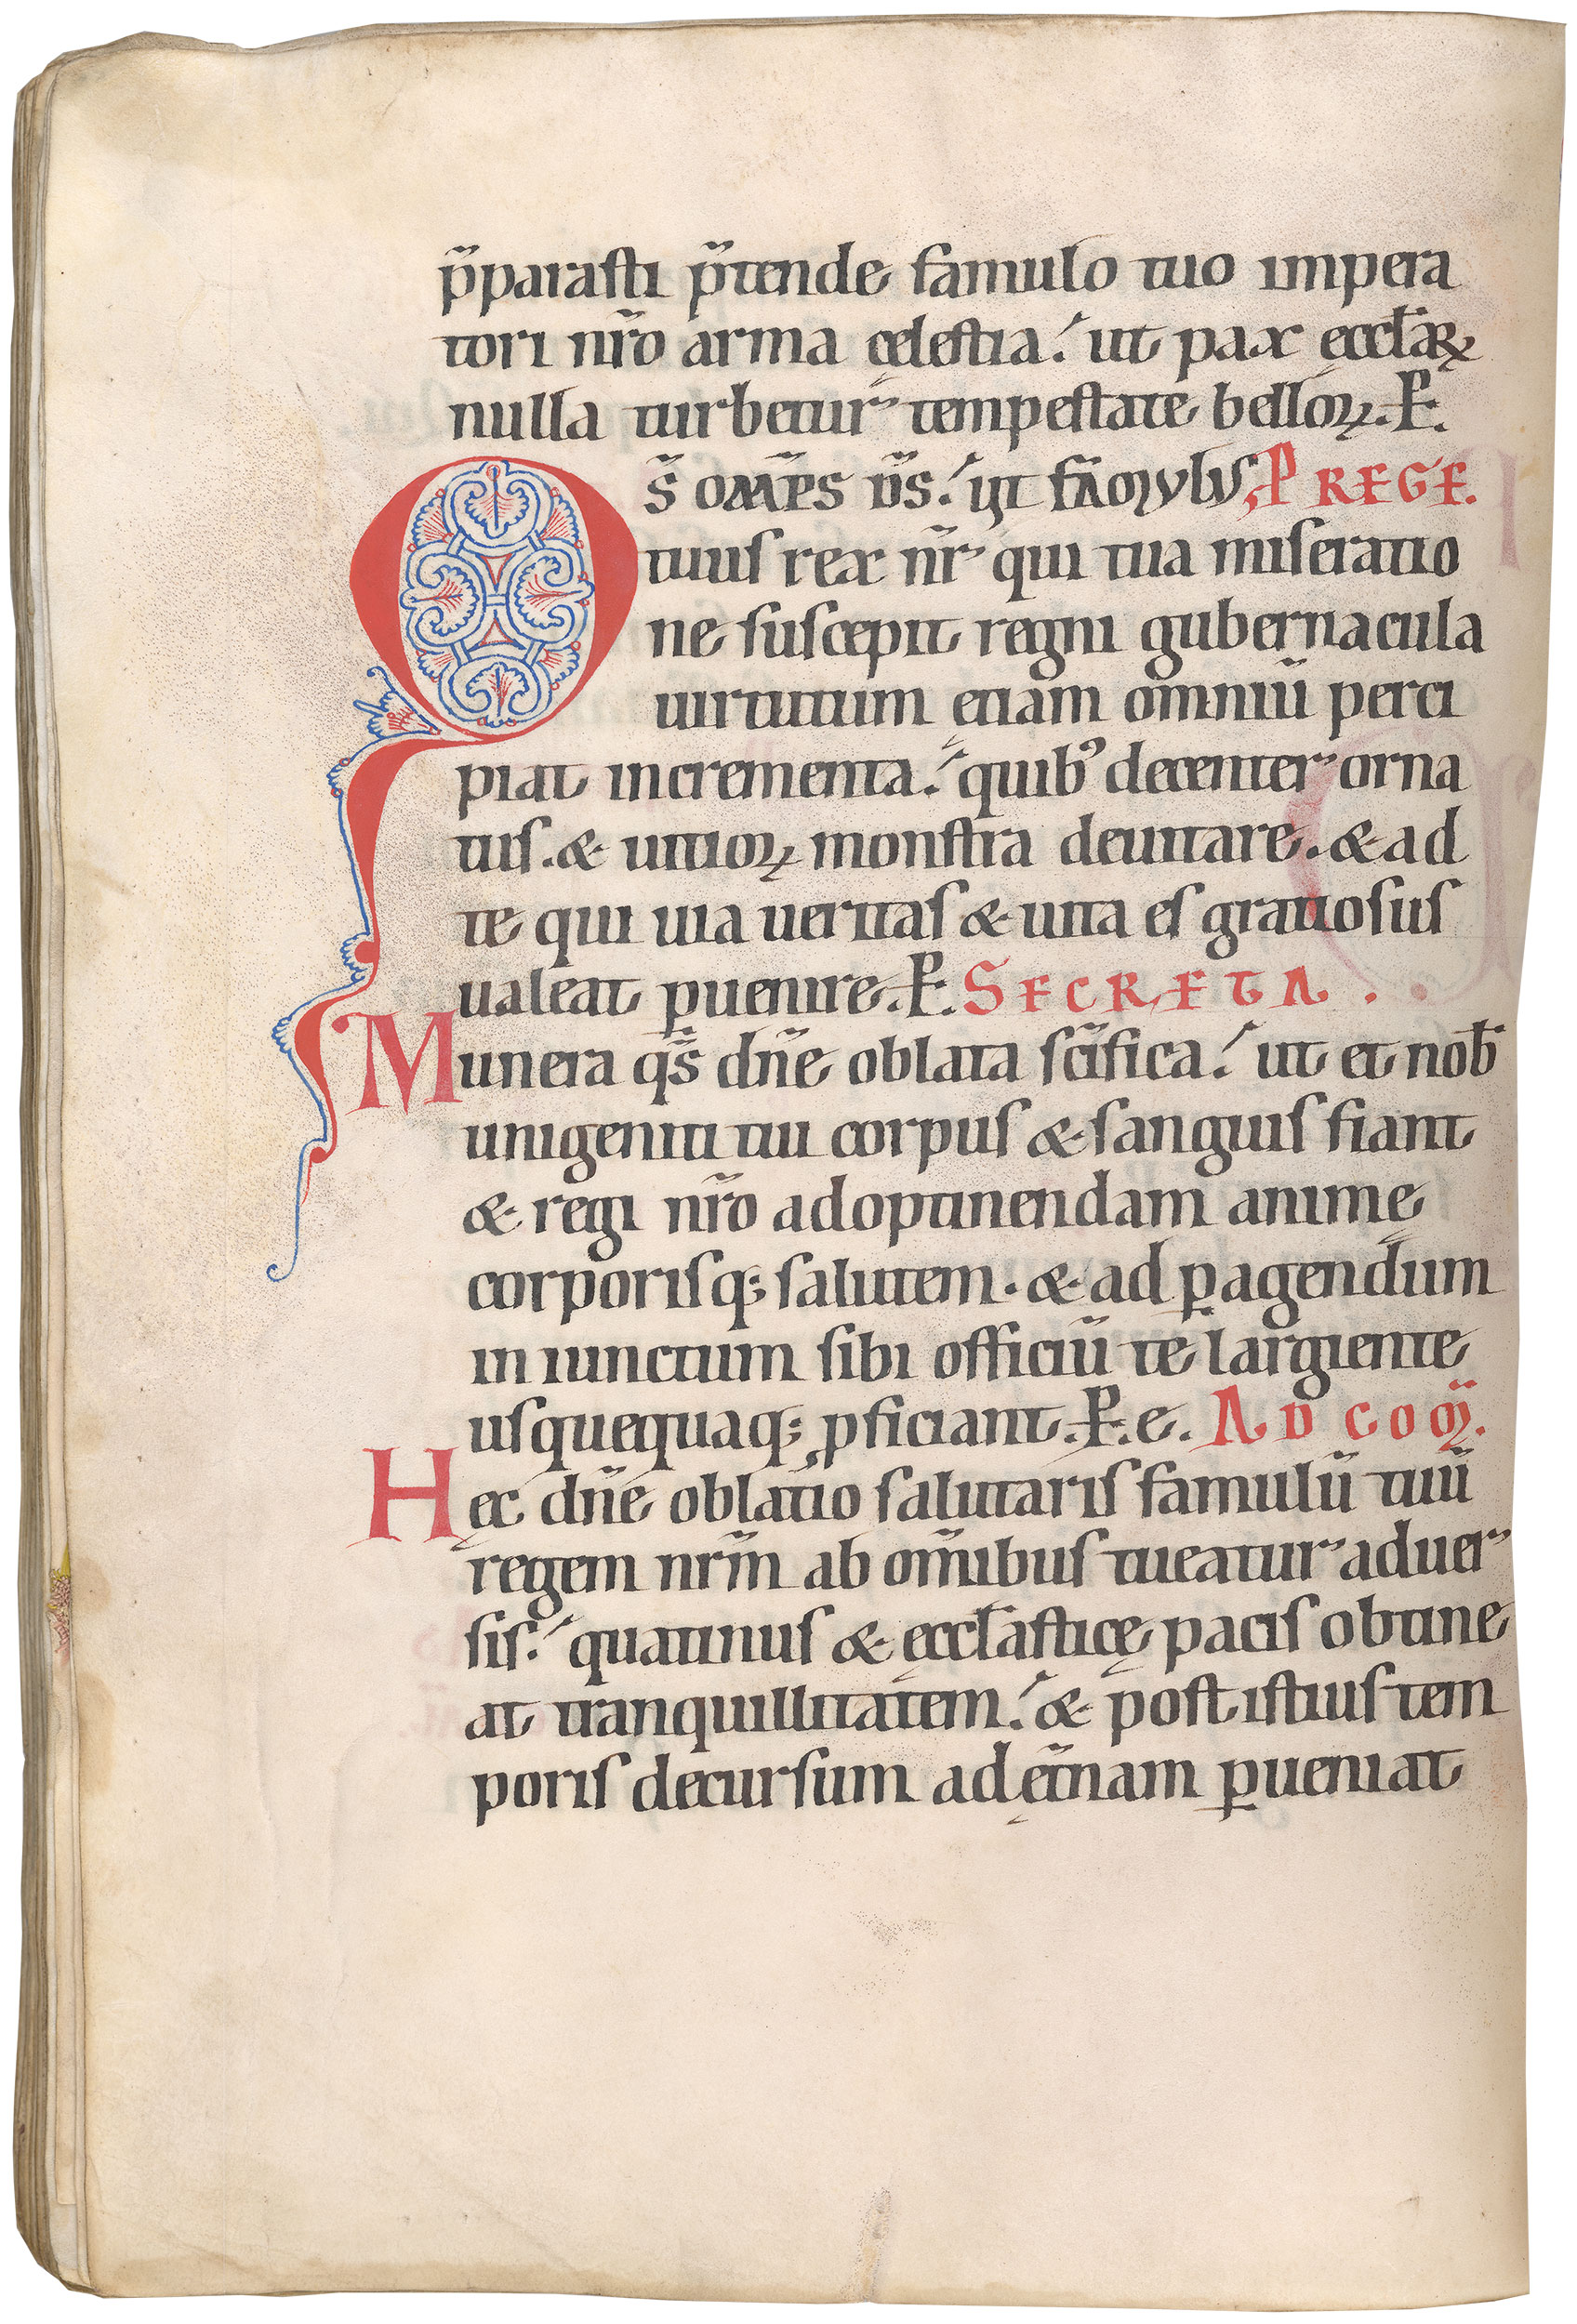 p̄parasti p̄tende famulo tuo impera
tori nr̄o arma cęlestia. ut pax ęccl̄aꝝ
nulla turbetur tempestate belloꝝ. P.
Qs̄ omp̄s d̄s. ut famulus P REGE.
tuus rex nr̄ qui tua miseratio
ne suscepit regni gubernacula
uirtutum etiam omniū perci
piat incrementa. quibꝰ decenter orna
tus. & uitioꝝ monstra deuitare. & ad
te qui uia ueritas & uita es gratiosus
ualeat ꝑuenire. P. SECRETA.
Munera qs̄ dn̄e oblata sc̄ifica. ut et nob̄
unigeniti tui corpus & sanguis fiant
& regi nr̄o ad optinendam animę
corporisq; salutem. & ad ꝑagendum
in iunctum sibi officiū te largiente
usquequaq; ꝓficiant. P. e. AD COM̄.
Hęc dn̄e oblatio salutaris famulū tuū
regem nrm̄ ab om̄ibus tueatur aduer
sis. quatinus & ęccl̄asticę pacis obtine
at tranquillitatem. & post istius tem
poris decursum ad ęt̄nam ꝑueniat